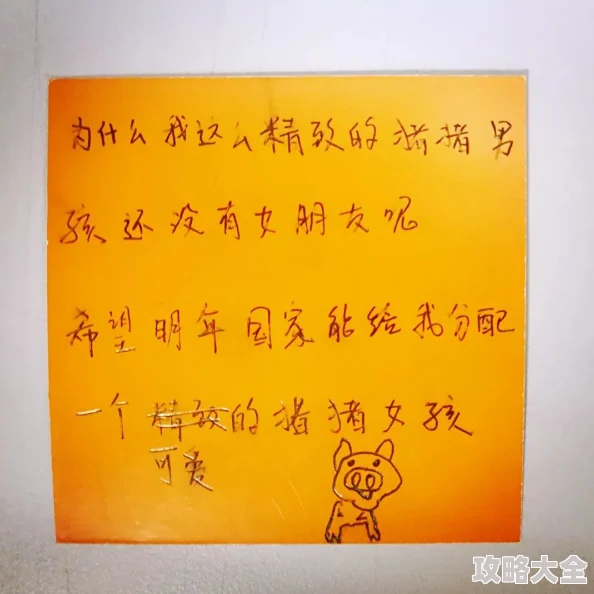 为什么我这么精致的猪猪男
孩还没有女朋友呢
希望明年国家能给我分配
一个精致的猪猪女孩
可爱
攻略大全